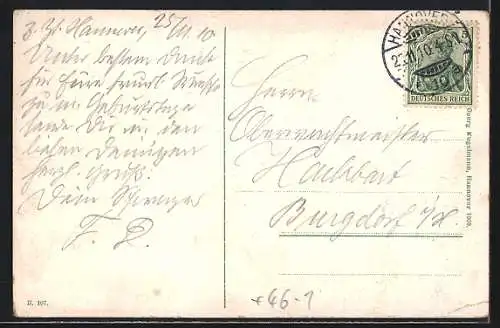 z. Zt. Hannover, 25/II. 10
Unter bestem Dank
für Eure freundl. Wünsche
zu m. Geburtstage
sende Dir u. den
lieben Deinigen
herzl. Grüße.
Dein Schwager
F. R.
HANNOVER
DEUTSCHES REICH
Herrn
Oberwachtmeister
Hachbart
Burgdorf i/H.
Georg Kugelmann, Hannover 1909.
H. 107.
+46-1